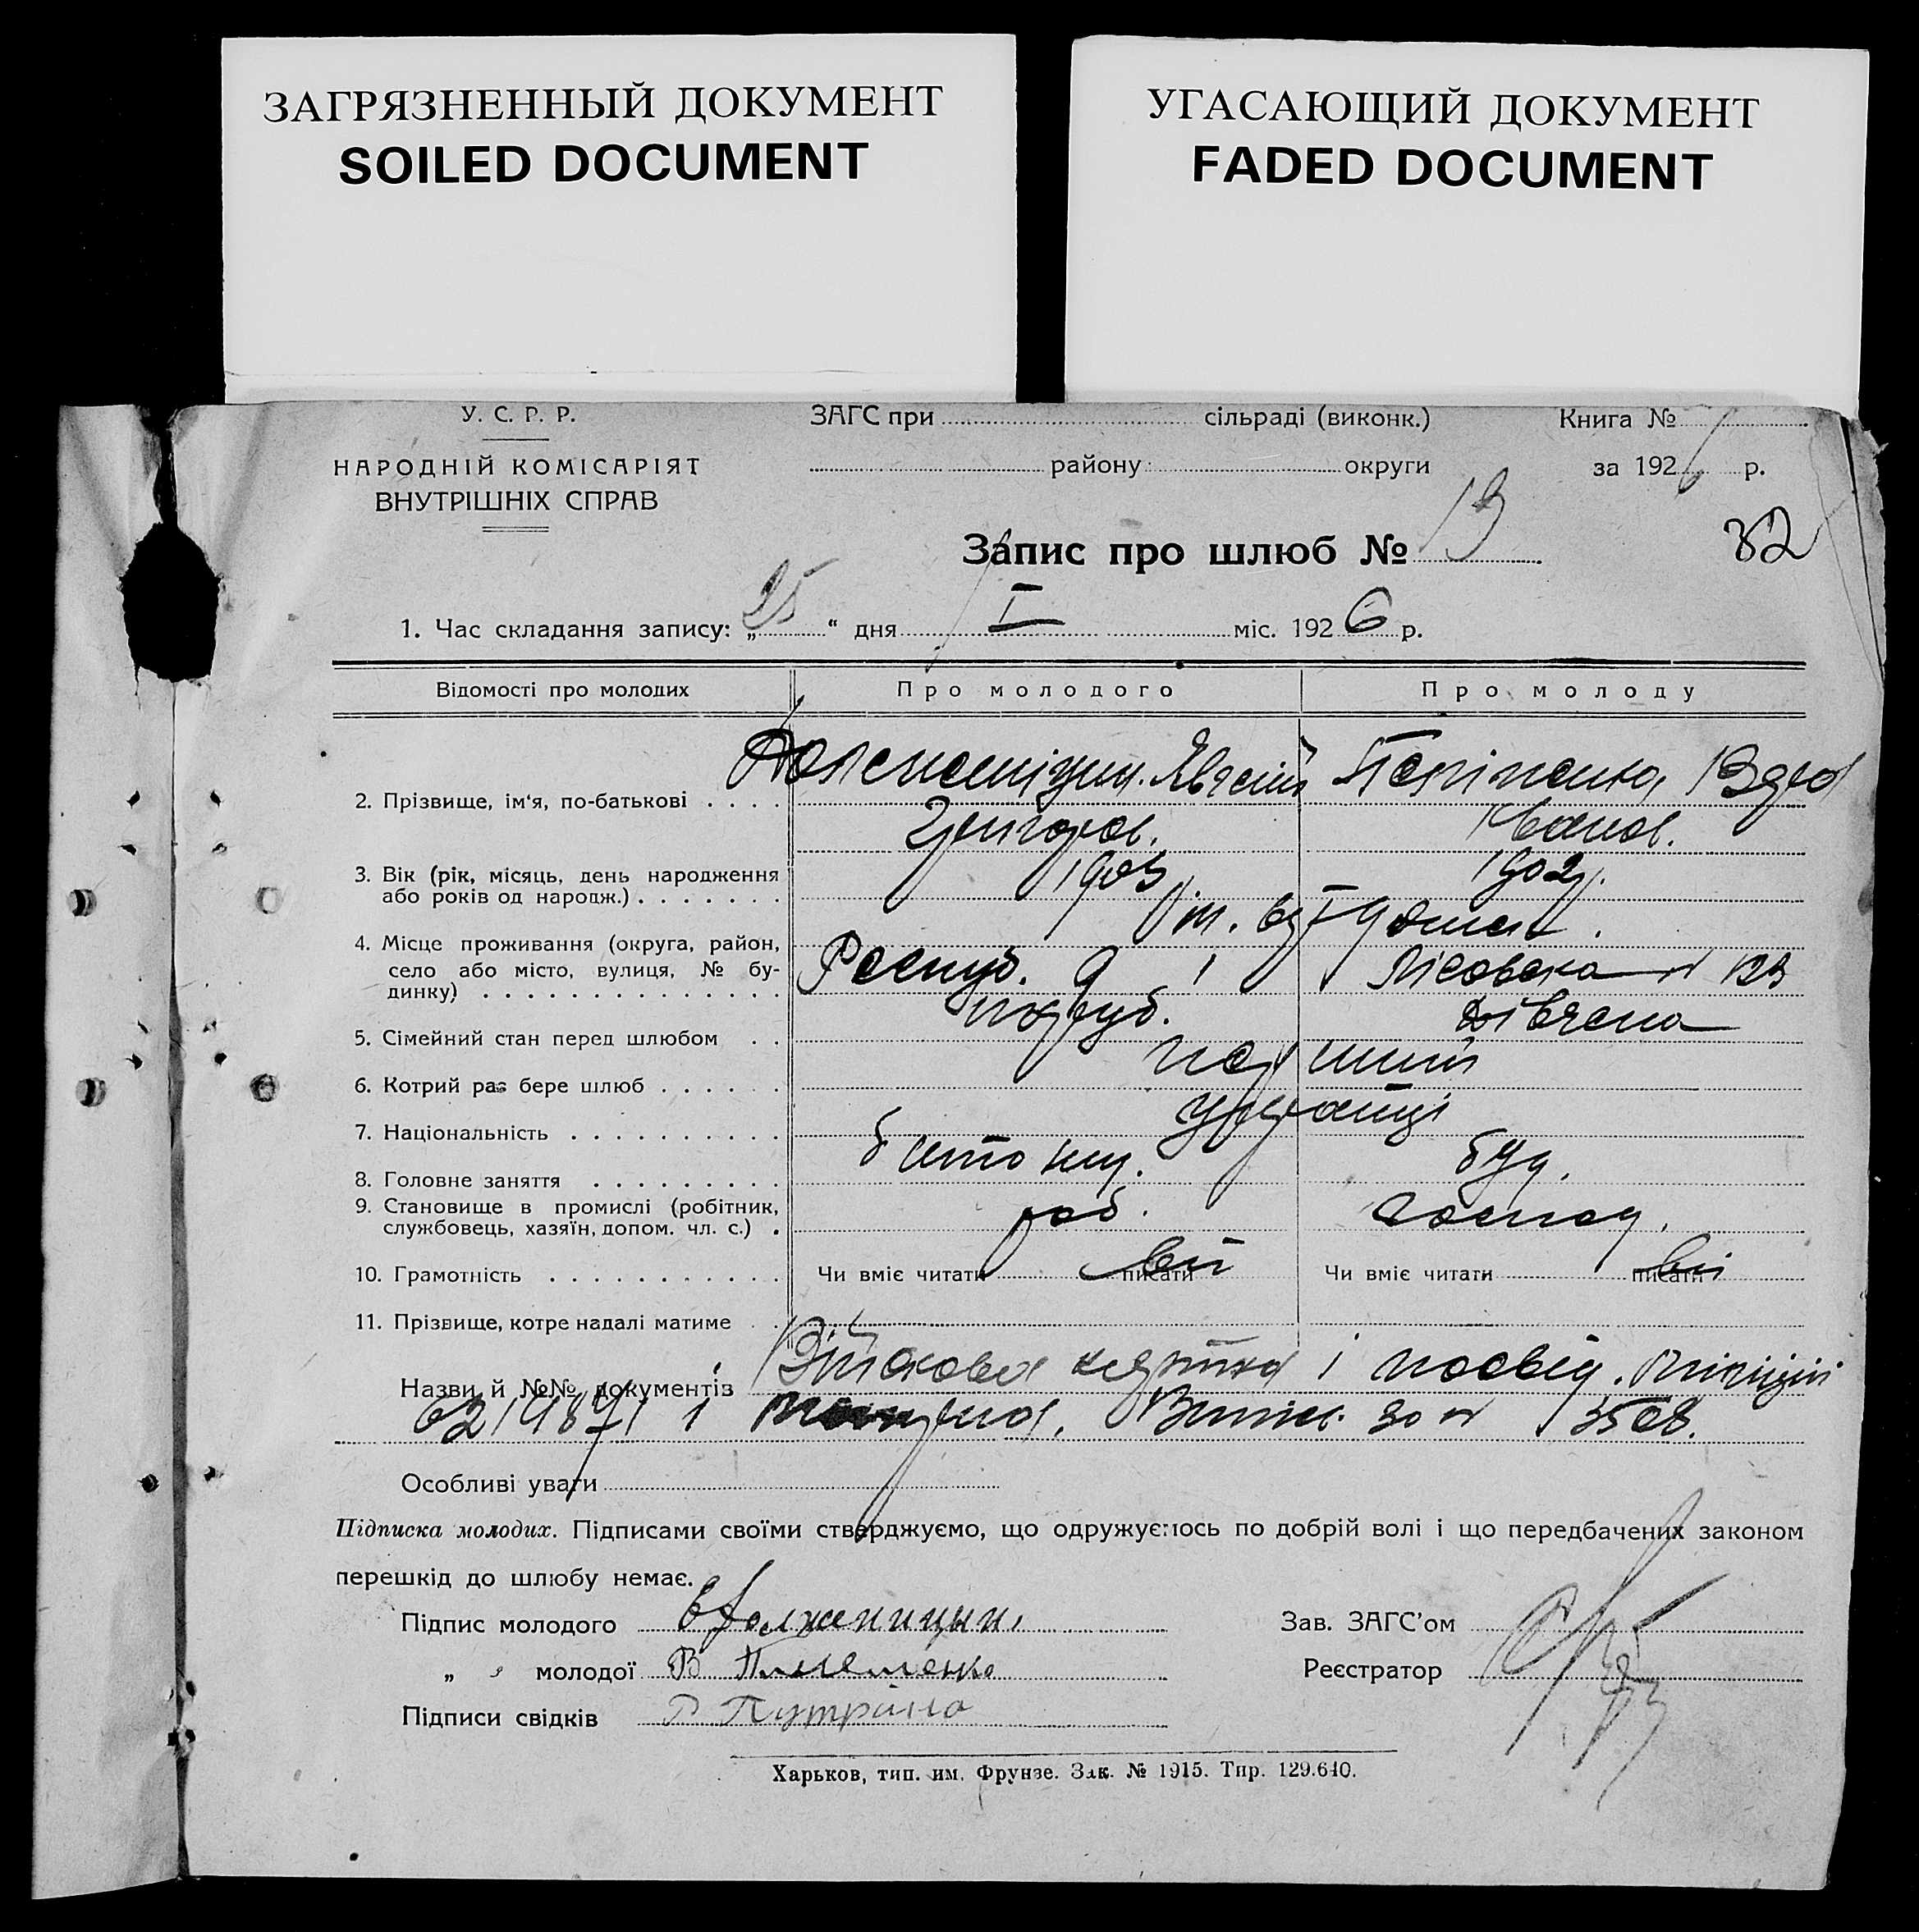 ЗАГРЯЗНЕННЫЙ ДОКУМЕНТ
SOILED DOCUMENT
УГАСАЮЩИЙ ДОКУМЕНТ
FADED DOCUMENT
У. С. Р. Р.
НАРОДНІЙ КОМІСАРІЯТ
ВНУТРІШНІХ СПРАВ
ЗАГС при сільраді (виконк.) Книга №
району округи за 192 р.
Запис про шлюб № 13
32
1. Час складання запису: „25“ дня I міс. 1926 р.
Відомості про молодих Про молодого Про молоду
2. Прізвище, ім'я, по-батькові
Григоров. Іванов.
3. Вік (рік, місяць, день народження 1903 1902 р.
або років од народж.)
4. Місце проживання (округа, район,
село або місто, вулиця, № бу- Респуб. 9 Лісовска № 123
динку)
5. Сімейний стан перед шлюбом паруб. дівчена
6. Котрий раз бере шлюб перший
7. Національність українці
8. Головне заняття
9. Становище в промислі (робітник, роб. господ.
службовець, хазяїн, допом. чл. с.)
10. Грамотність Чи вміє читати писати вій Чи вміє читати писати вій
11. Прізвище, котре надалі матиме
Назви й №№ документів Війскова картка і посвід. міліції
Особливі уваги
Підписка молодих. Підписами своїми стверджуємо, що одружуємось по добрій волі і що передбачених законом
перешкід до шлюбу немає.
Підпис молодого Зав. ЗАГС'ом
„ „ молодої В Реєстратор
Підписи свідків
Харьков, тип. им. Фрунзе. Зак. № 1915. Тир. 129.640.